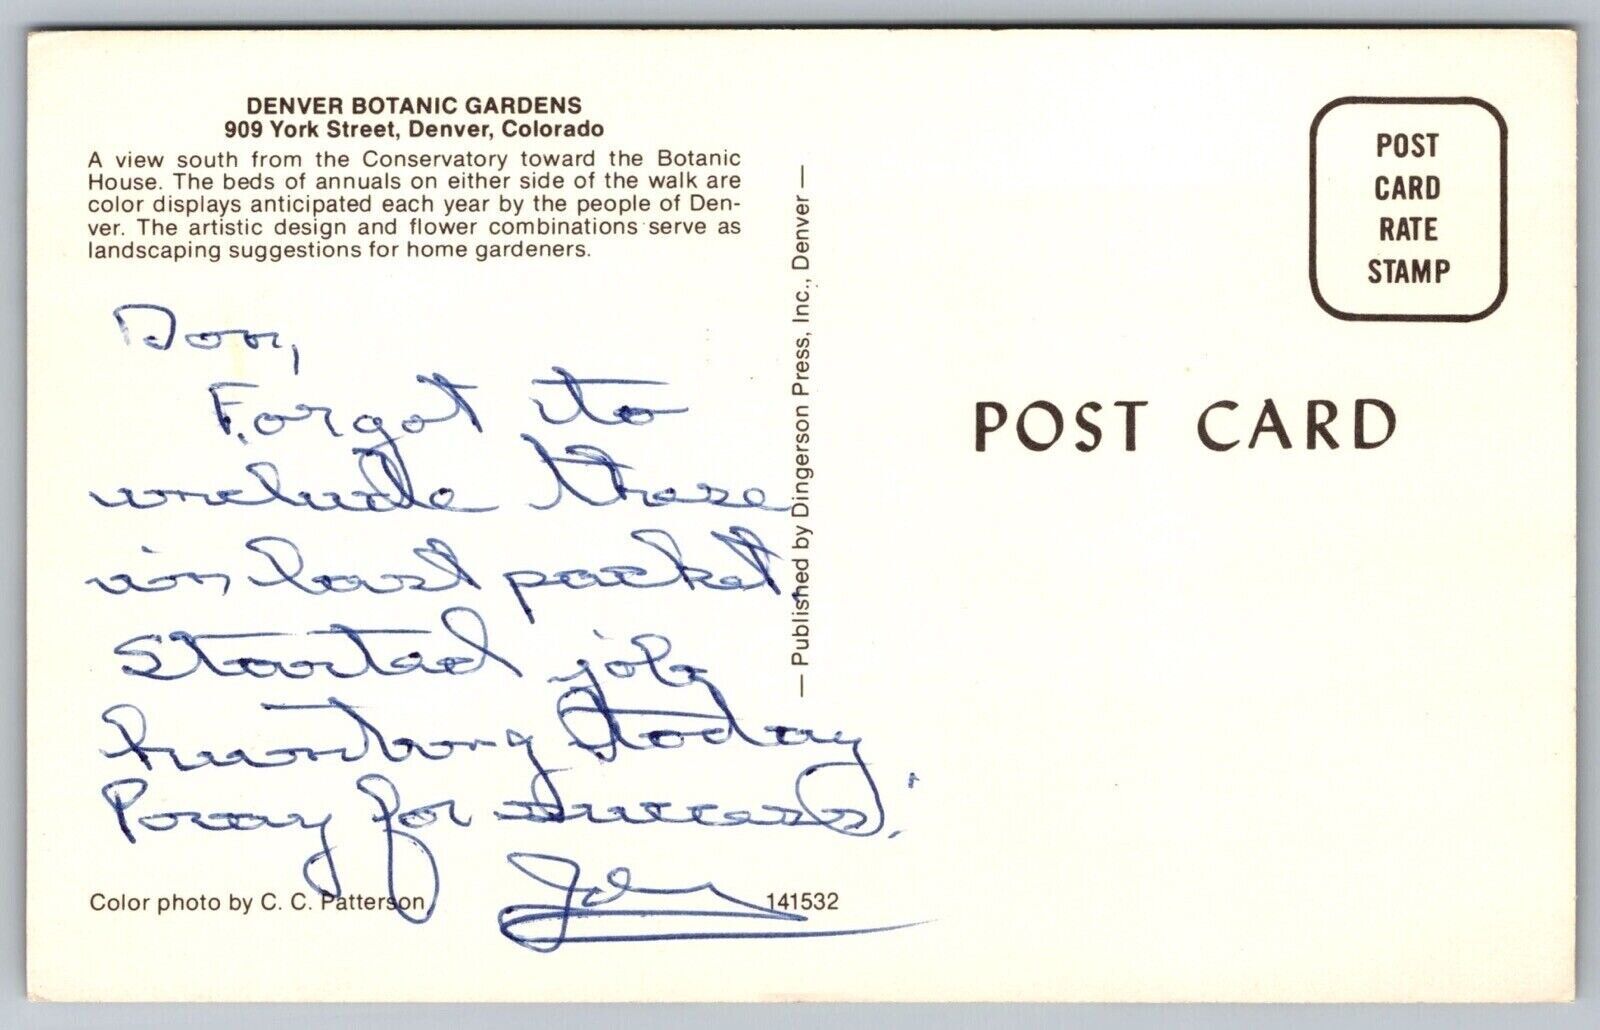 DENVER BOTANIC GARDENS
909 York Street, Denver, Colorado
A view south from the Conservatory toward the Botanic
House. The beds of annuals on either side of the walk are
color displays anticipated each year by the people of Den-
ver. The artistic design and flower combinations serve as
landscaping suggestions for home gardeners.
Don,
Forgot to
include these
in last packet
Started job
hunting today
Pray for success!
John
Color photo by C. C. Patterson
141532
— Published by Dingerson Press, Inc., Denver —
POST
CARD
RATE
STAMP
POST CARD